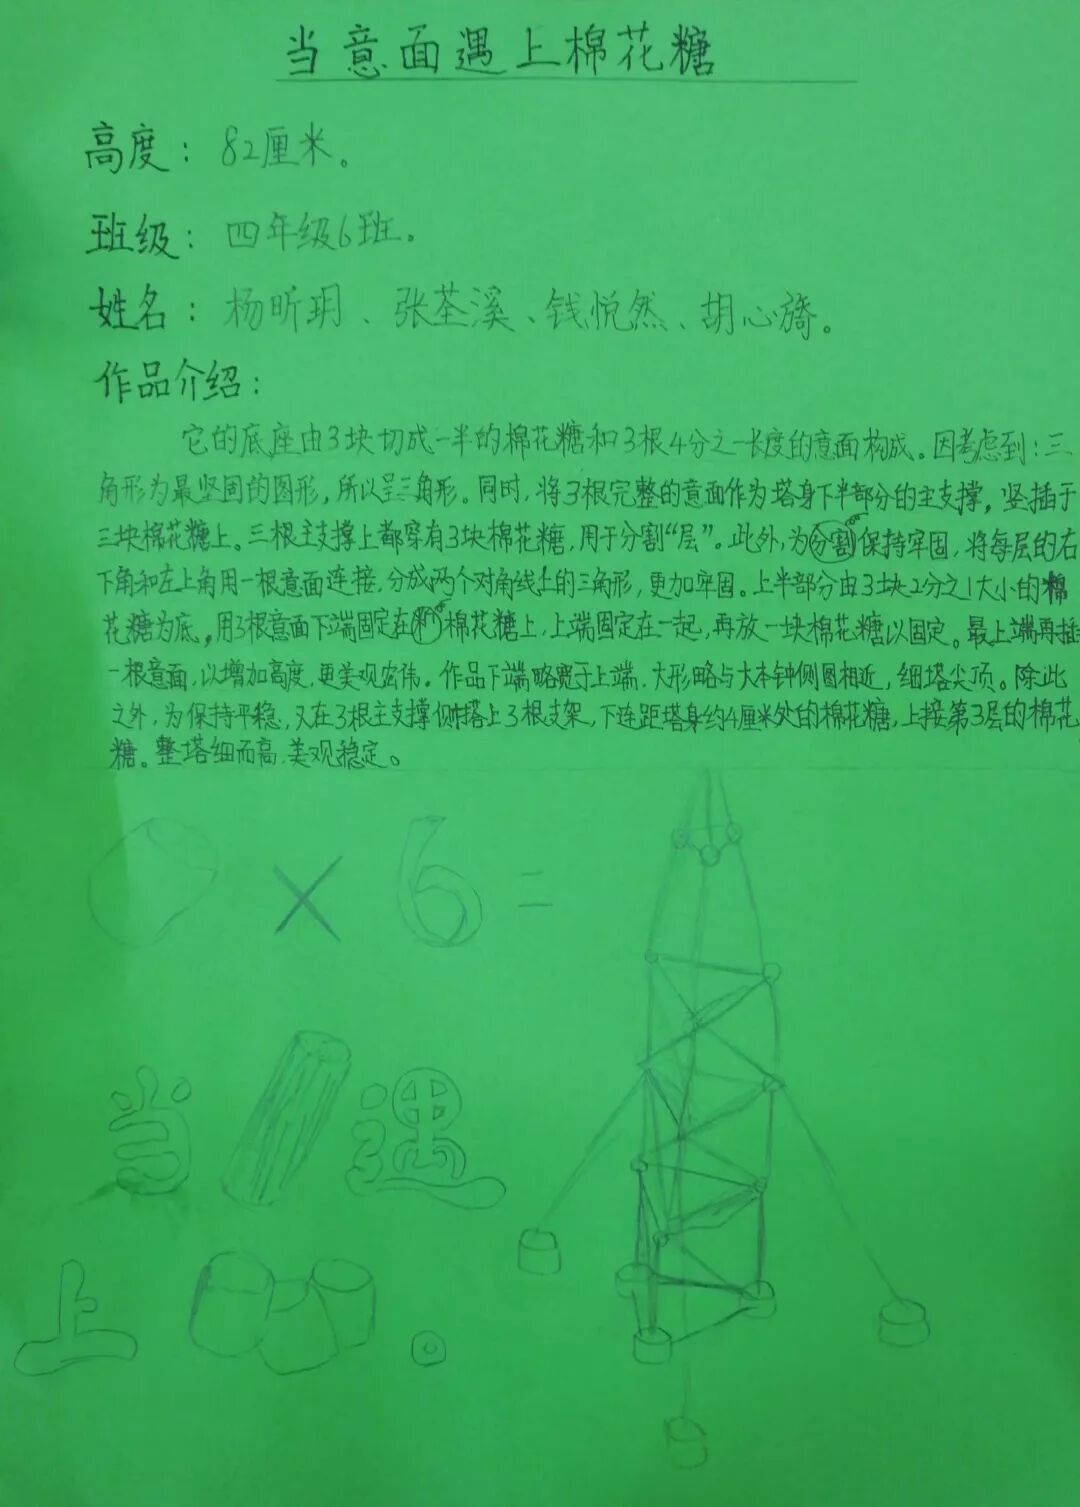 当意面遇上棉花糖
高度：82厘米。
班级：四年级6班。
姓名：杨昕玥、张荃溪、钱悦然、胡心旖。
作品介绍：
它的底座由3块切成一半的棉花糖和3根4分之一长度的意面构成。因考虑到：三
角形为最坚固的图形，所以呈三角形。同时，将3根完整的意面作为塔身下半部分的主支撑，竖插于
三块棉花糖上。三根主支撑上都穿有3块棉花糖，用于分割“层”。此外，为分割保持牢固，将每层的右
下角和左上角用一根意面连接，分成两个对角线上的三角形，更加牢固。上半部分由3块2分之1大小的棉
花糖为底，用3根意面下端固定在棉花糖上，上端固定在一起，再放一块棉花糖以固定。最上端再插
一根意面，以增加高度，更美观宏伟。作品下端略宽于上端，大形略与大本钟侧图相近，细塔尖顶。除此
之外，为保持平稳，又在3根主支撑侧搭上3根支架，下连距塔身约4厘米处的棉花糖，上接第3层的棉花
糖。整塔细而高，美观稳定。
× 6 =
当 遇
上 。